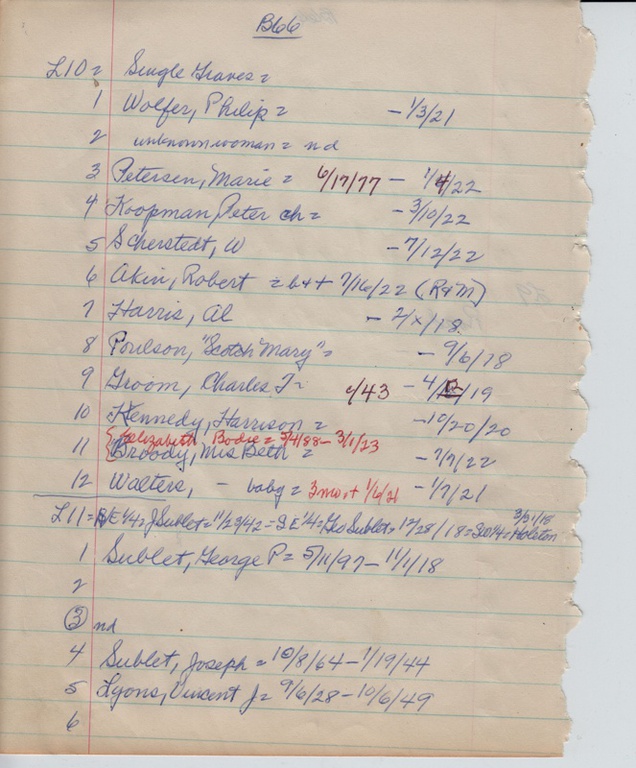 B66
L10 = Single Graves =
1 Wolfer, Philip = - 1/3/21
2 unknown woman = nd
3 Petersen, Marie = 6/17/77 - 1/4/22
4 Koopman, Peter ch = - 3/10/22
5 Scherstedt, W - 7/12/22
6 Akin, Robert = b++ 7/16/22 (R+M)
7 Harris, Al - 2/x/18
8 Poulson, "Scotch Mary" = - 9/6/18
9 Groom, Charles T = c/43 - 4/ /19
10 Kennedy, Harrison = - 10/20/20
{ Elizabeth Bodie = 5/4/88 - 3/1/23
11 { Broody, Mrs Beth = - 7/7/22
12 Walters, - baby = 3mo, + 1/6/21 - 1/7/21
3/31/18
L11 = N/E 1/4 = J Sublet = 11/29/42 = SE 1/4 = Geo Sublet = 12/28/18 = SW 1/4 = Holston
1 Sublet, George P = 5/11/97 - 11/1/18
2
3 nd
4 Sublet, Joseph = 10/8/64 - 1/19/44
5 Lyons, Vincent J = 9/6/28 - 10/6/49
6